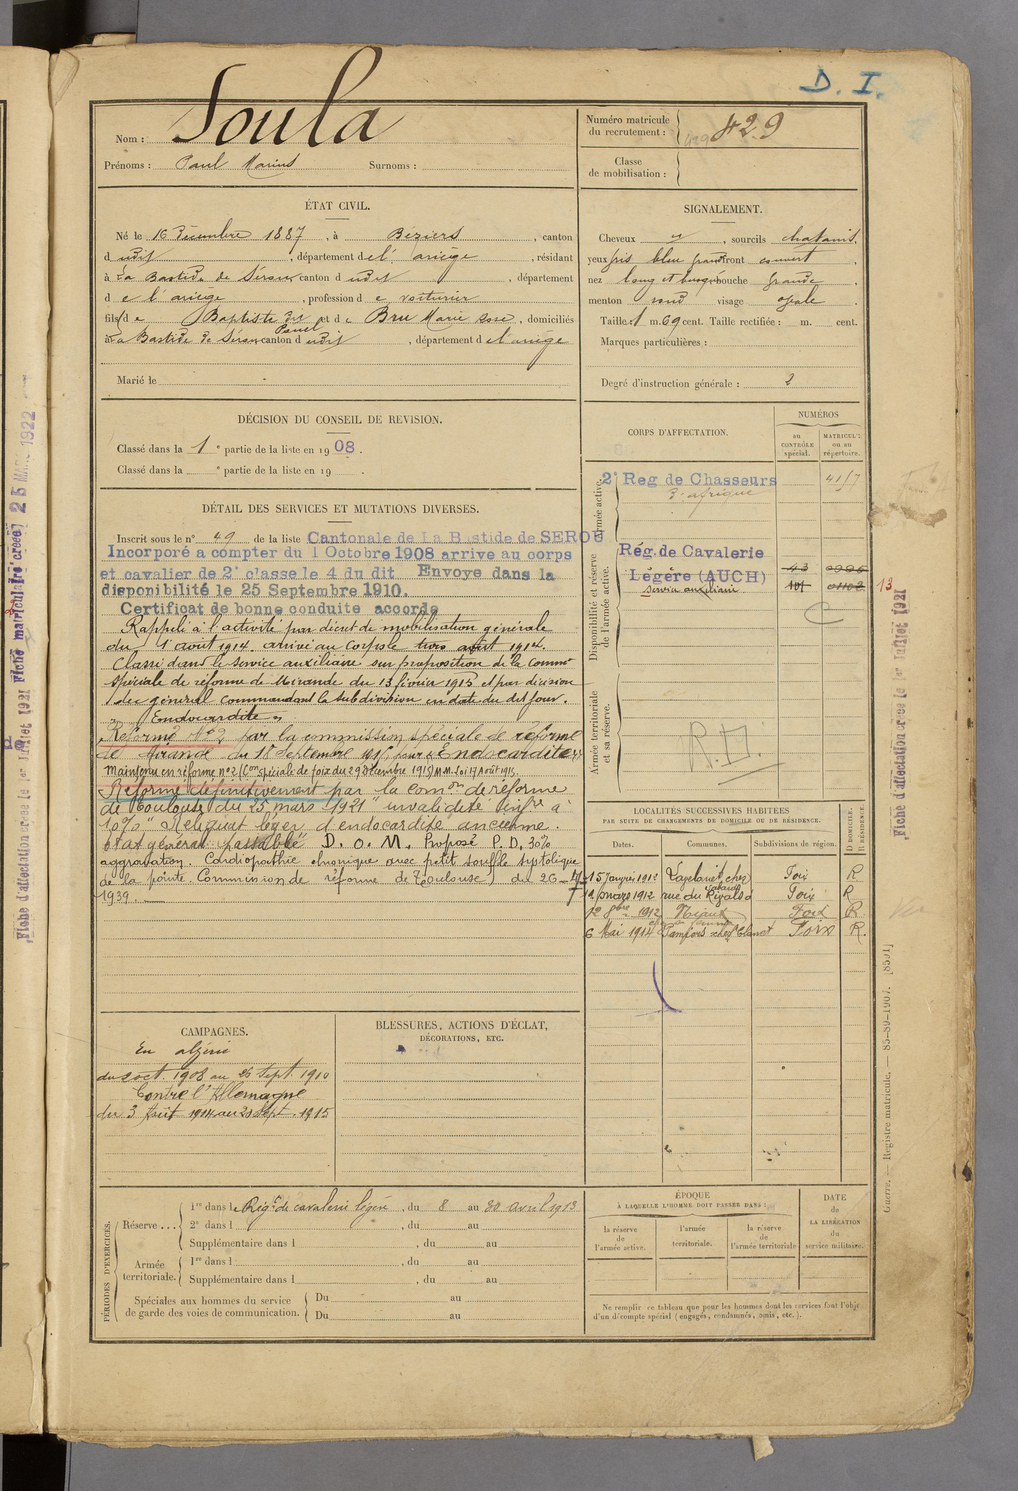 D. I.
Nom : Soula
Prénoms : Paul Marius Surnoms :
Numéro matricule
du recrutement : 429
Classe
de mobilisation :
ÉTAT CIVIL.
Né le 16 Décembre 1887, à Béziers, canton
dudit, département de l'ariège, résidant
à La Bastide de Sérou canton dudit, département
de l'ariège, profession de voiturier
fils de Baptiste Paul et de Bru Marie Rose, domiciliés
à La Bastide de Sérou canton dudit, département de l'ariège
Marié le
SIGNALEMENT.
Cheveux y, sourcils chatains,
yeux gris bleu front couvert,
nez long et bouche grande,
menton rond visage ovale
Taille 1 m. 69 cent. Taille rectifiée : m. cent.
Marques particulières :
Degré d'instruction générale : 2
DÉCISION DU CONSEIL DE REVISION.
Classé dans la 1e partie de la liste en 1908.
Classé dans la e partie de la liste en 19 .
DÉTAIL DES SERVICES ET MUTATIONS DIVERSES.
Inscrit sous le n° 49 de la liste Cantonale de La Bastide de SEROU
Incorporé à compter du 1 Octobre 1908 arrive au corps
et cavalier de 2e classe le 4 du dit Envoye dans la
disponibilité le 25 Septembre 1910.
Certificat de bonne conduite accorde
Rappelé à l'activité par décret de mobilisation générale
du 1 août 1914. arrivé au corps le trois août 1914.
Classé dans le service auxiliaire sur proposition de la Common
spéciale de réforme de Mirande du 13 février 1915 et par décision
du général commandant la subdivision en date du dit jour.
"Endocardite"
Réformé N°2 par la commission spéciale de réforme
de Mirande du 18 septembre 1915 pour "Endocardite"
Maintenu en réforme n°2 (Con spéciale de foix du 29 Décembre 1915) M.M. Loi 17 Août 1915.
Réformé définitivement par la Comon de réforme
de Toulouse du 15 mars 1921 "invalidité infre à
10%" Reliquat léger d'endocardite ancienne.
Etat général passable" D. O. M. Proposé P. D. 30%
aggravation. Cardiopathie chronique avec petit souffle systolique
de la pointe. Commission de réforme de (Toulouse) du 26-4-
1939.
CORPS D'AFFECTATION.
NUMÉROS
au CONTRÔLE spécial.
MATRICULE ou au répertoire.
Armée active.
2e Reg de Chasseurs 41/7
d'afrique
Disponibilité et réserve de l'armée active.
Rég. de Cavalerie
Légère (AUCH) 43
Service auxiliaire 101 01102
13
C
Armée territoriale et sa réserve.
R.D.
LOCALITÉS SUCCESSIVES HABITÉES
PAR SUITE DE CHANGEMENTS DE DOMICILE OU DE RÉSIDENCE.
Dates. Communes. Subdivisions de région. D DOMICILE. R RÉSIDENCE.
15 Janvier 1912 Lagelanet, chez Foix R
19 mars 1912 rue du Foix R
12 8bre 1912 Foix R
6 Mai 1914 Pamiers chez Foix R.
CAMPAGNES.
En algérie
du 2 oct. 1908 au 25 Sept. 1910
Contre l'Allemagne
du 3 Août 1914 au 20 Sept. 1915
BLESSURES, ACTIONS D'ÉCLAT,
DÉCORATIONS, ETC.
PÉRIODES D'EXERCICES.
Réserve... 1re dans le Régt de cavalerie légère, du 8 au 30 avril 1913
2e dans l , du au
Supplémentaire dans l , du au
Armée territoriale. 1re dans l , du au
Supplémentaire dans l , du au
Spéciales aux hommes du service
de garde des voies de communication.
Du au
Du au
ÉPOQUE
À LAQUELLE L'HOMME DOIT PASSER DANS :
la réserve de l'armée active.
l'armée territoriale.
la réserve de l'armée territoriale
DATE
de
LA LIBÉRATION
du
service militaire.
Ne remplir ce tableau que pour les hommes dont les services font l'objet
d'un décompte spécial (engagés, condamnés, omis, etc.).
Guerre. — Registre matricule. — 85-89-1907. [8501]
Fiche d'affectation créée le 1er Juillet 1921
Fiche d'affectation créée le 1er Juillet 1921 Fiche matriculaire créée 25 MARS 1922